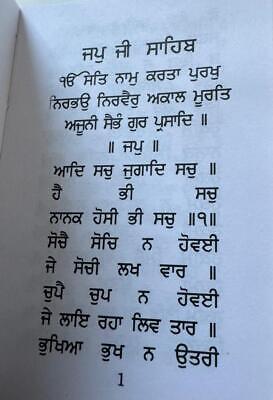 ਜਪੁ ਜੀ ਸਾਹਿਬ
ੴ ਸਤਿ ਨਾਮੁ ਕਰਤਾ ਪੁਰਖੁ
ਨਿਰਭਉ ਨਿਰਵੈਰੁ ਅਕਾਲ ਮੂਰਤਿ
ਅਜੂਨੀ ਸੈਭੰ ਗੁਰ ਪ੍ਰਸਾਦਿ ॥
॥ ਜਪੁ ॥
ਆਦਿ ਸਚੁ ਜੁਗਾਦਿ ਸਚੁ ॥
ਹੈ ਭੀ ਸਚੁ
ਨਾਨਕ ਹੋਸੀ ਭੀ ਸਚੁ ॥੧॥
ਸੋਚੈ ਸੋਚਿ ਨ ਹੋਵਈ
ਜੇ ਸੋਚੀ ਲਖ ਵਾਰ ॥
ਚੁਪੈ ਚੁਪ ਨ ਹੋਵਈ
ਜੇ ਲਾਇ ਰਹਾ ਲਿਵ ਤਾਰ ॥
ਭੁਖਿਆ ਭੁਖ ਨ ਉਤਰੀ
1